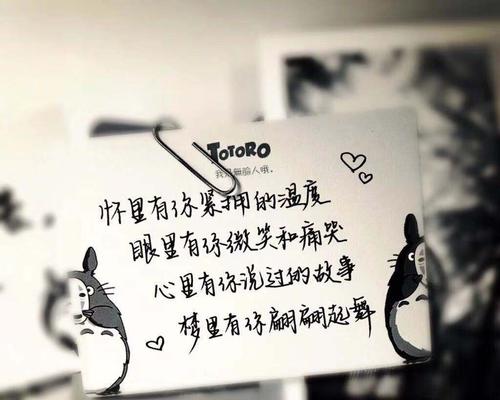 TOTORO
我是無臉人哦.
怀里有你紧拥的温度
眼里有你微笑和痛哭
心里有你说过的故事
梦里有你翩翩起舞